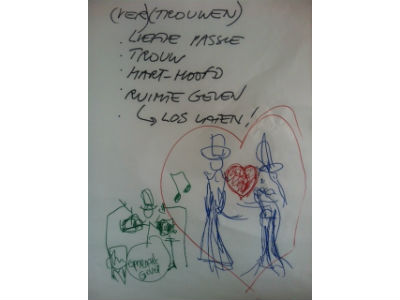 (VER)(TROUWEN)
· LIEFDE PASSIE
· TROUW
· HART-HOOFD
· RUIMTE GEVEN
· ↳ LOS LATEN!